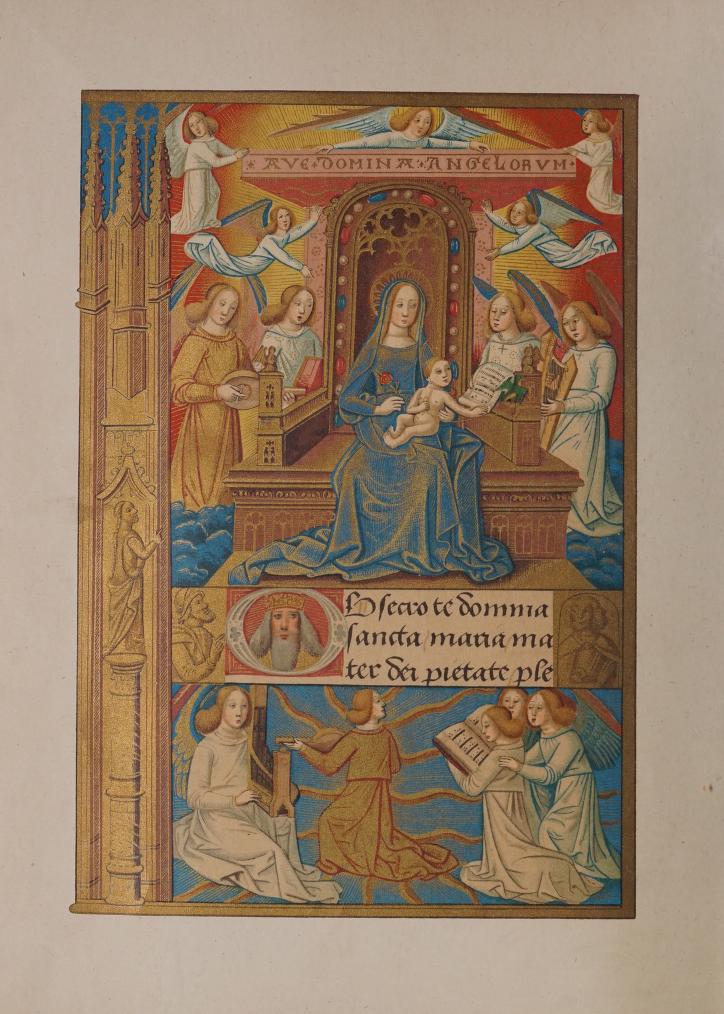 AVE DOMINA ANGELORVM
O secro te domina
sancta maria ma
ter dei pietate ple